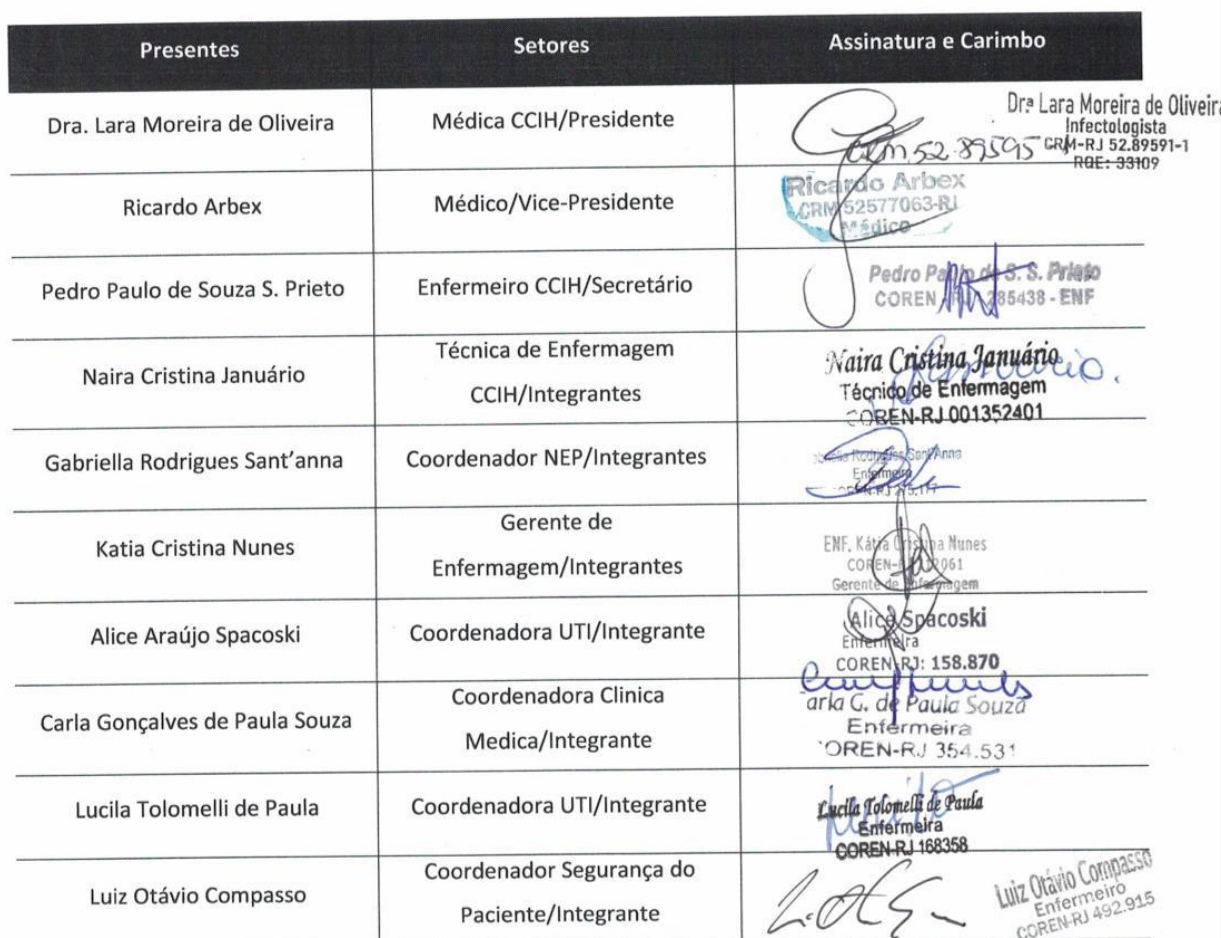 Presentes Setores Assinatura e Carimbo
Dra. Lara Moreira de Oliveira Médica CCIH/Presidente
CRM 52.89595
Drª Lara Moreira de Oliveira
Infectologista
CRM-RJ 52.89591-1
RQE: 33109
Ricardo Arbex Médico/Vice-Presidente
Ricardo Arbex
CRM 52577063-RJ
Médico
Pedro Paulo de Souza S. Prieto Enfermeiro CCIH/Secretário
Pedro Paulo de S. S. Prieto
COREN 285438 - ENF
Naira Cristina Januário
Técnica de Enfermagem
CCIH/Integrantes
Naira Cristina Januário
Técnico de Enfermagem
COREN-RJ 001352401
Gabriella Rodrigues Sant’anna Coordenador NEP/Integrantes
Rodrigues Sant'Anna
Enfermeira
Katia Cristina Nunes
Gerente de
Enfermagem/Integrantes
ENF. Kátia Cristina Nunes
COREN-
Gerente de Enfermagem
Alice Araújo Spacoski Coordenadora UTI/Integrante
Alice Spacoski
Enfermeira
COREN-RJ: 158.870
Carla Gonçalves de Paula Souza
Coordenadora Clinica
Medica/Integrante
arla G. de Paula Souza
Enfermeira
OREN-RJ 354.531
Lucila Tolomelli de Paula Coordenadora UTI/Integrante
Lucila Tolomelli de Paula
Enfermeira
COREN-RJ 168358
Luiz Otávio Compasso
Coordenador Segurança do
Paciente/Integrante
Luiz Otávio Compasso
Enfermeiro
COREN-RJ 492.915